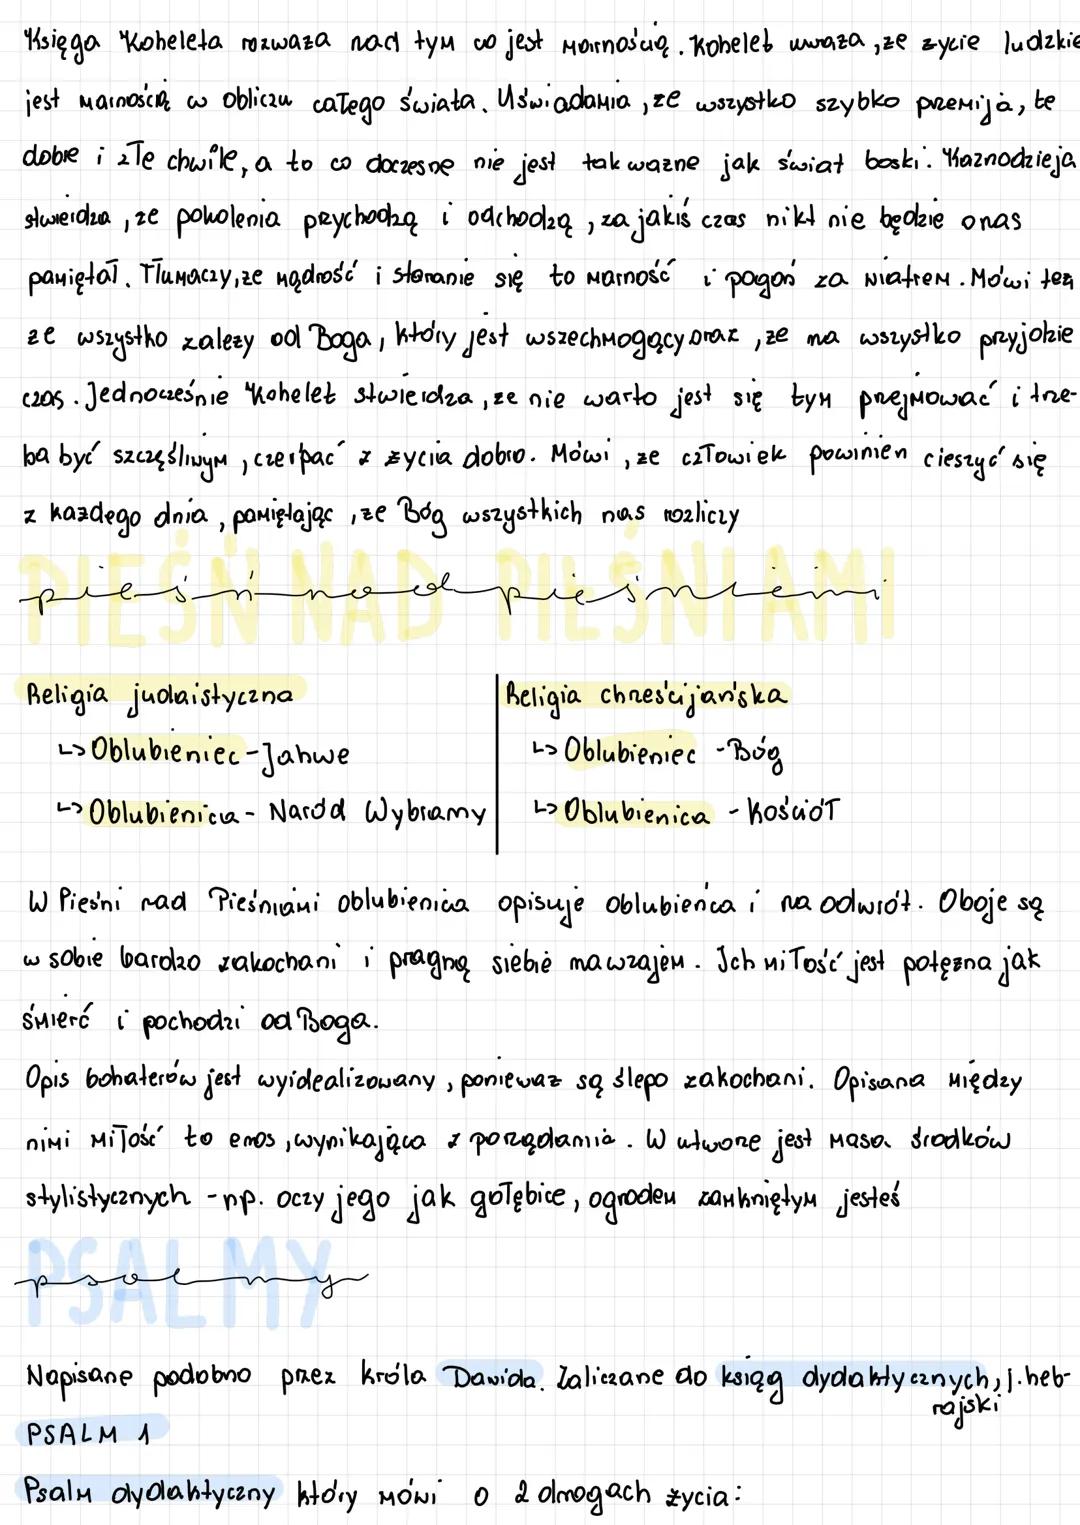 Księga Koheleta rozważa nad tym co jest marnością. Kohelet uważa, że życie ludzkie
jest marnością w obliczu całego świata. Uświadamia, że wszystko szybko przemija, te
dobre i złe chwile, a to co doczesne nie jest tak ważne jak świat boski. Kaznodzieja
stwierdza, że pokolenia przychodzą i odchodzą, za jakiś czas nikt nie będzie o nas
pamiętał. Tłumaczy, że mądrość i staranie się to marność i pogoń za wiatrem. Mówi też
że wszystko zależy od Boga, który jest wszechmogący oraz, że na wszystko przyjdzie
czas. Jednocześnie Kohelet stwierdza, że nie warto jest się tym przejmować i trze-
ba być szczęśliwym, czerpać z życia dobro. Mówi, że człowiek powinien cieszyć się
z każdego dnia, pamiętając, że Bóg wszystkich nas rozliczy
PIEŚŃ NAD PIEŚNIAMI
pieśń nad pieśniami
Religia judaistyczna
↳ Oblubieniec - Jahwe
↳ Oblubienica - Naród Wybrany
Religia chrześcijańska
↳ Oblubieniec - Bóg
↳ Oblubienica - Kościół
W Pieśni nad Pieśniami oblubienica opisuje oblubieńca i na odwrót. Oboje są
w sobie bardzo zakochani i pragną siebie nawzajem. Ich miłość jest potężna jak
śmierć i pochodzi od Boga.
Opis bohaterów jest wyidealizowany, ponieważ są ślepo zakochani. Opisana między
nimi miłość to eros, wynikająca z porządania. W utworze jest masa środków
stylistycznych - np. oczy jego jak gołębice, ogrodem zamkniętym jesteś
PSALMY
psalmy
Napisane podobno przez króla Dawida. Zaliczane do ksiąg dydaktycznych, j. heb-
rajski
PSALM 1
Psalm dydaktyczny który mówi o 2 drogach życia: